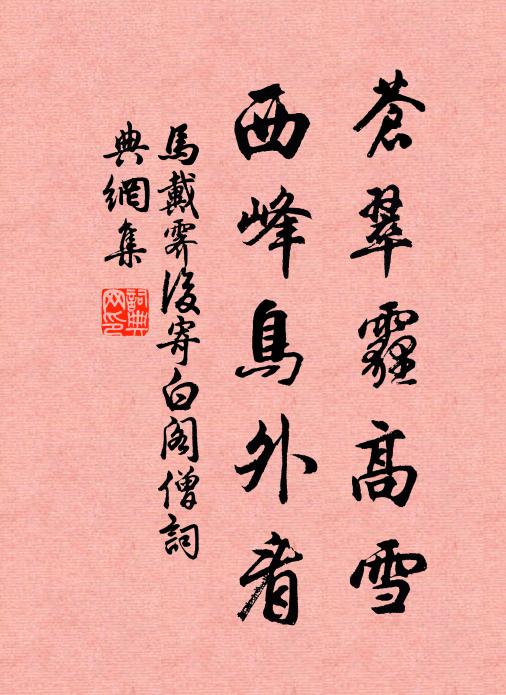 蒼翠霾高雪
西峰鳥外看
馬戴霽後寄白閣僧詞
典網集
詞典網印